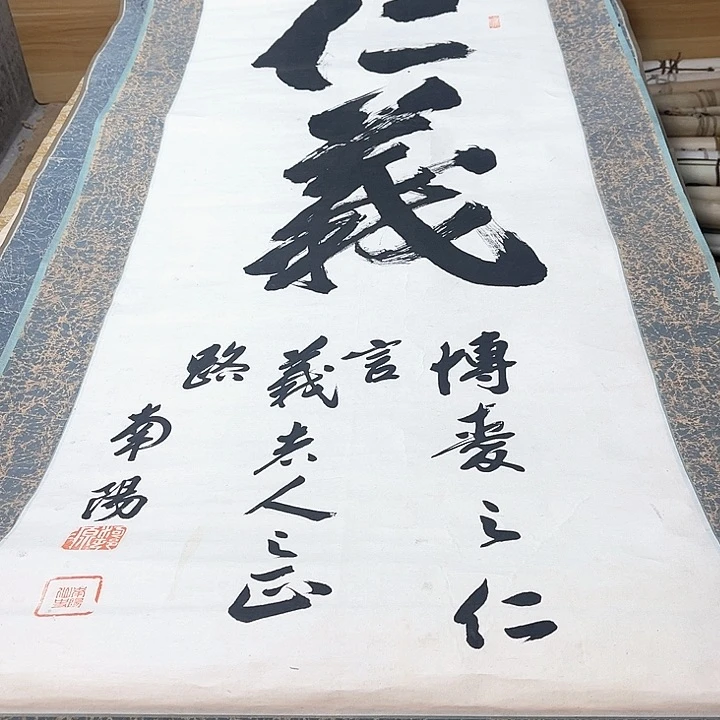 仁義
博愛之仁
言
義者人之正
路
南陽